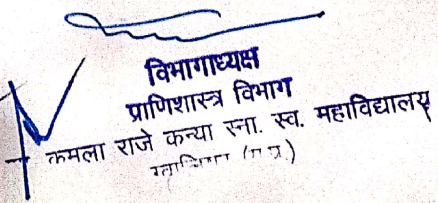 विभागाध्यक्ष
प्राणिशास्त्र विभाग
कमला राजे कन्या स्ना. स्व. महाविद्यालय